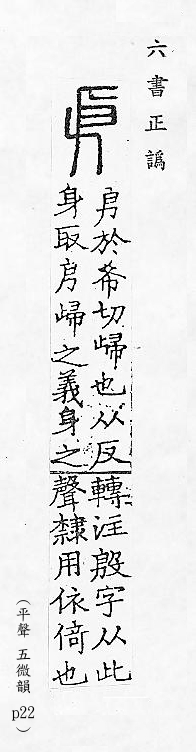 六書正譌
㐆於希切㱕也从反
身取㐆㱕之義身之
轉注殷字从此
聲隸用依倚也
（平聲 五微韻 p22）